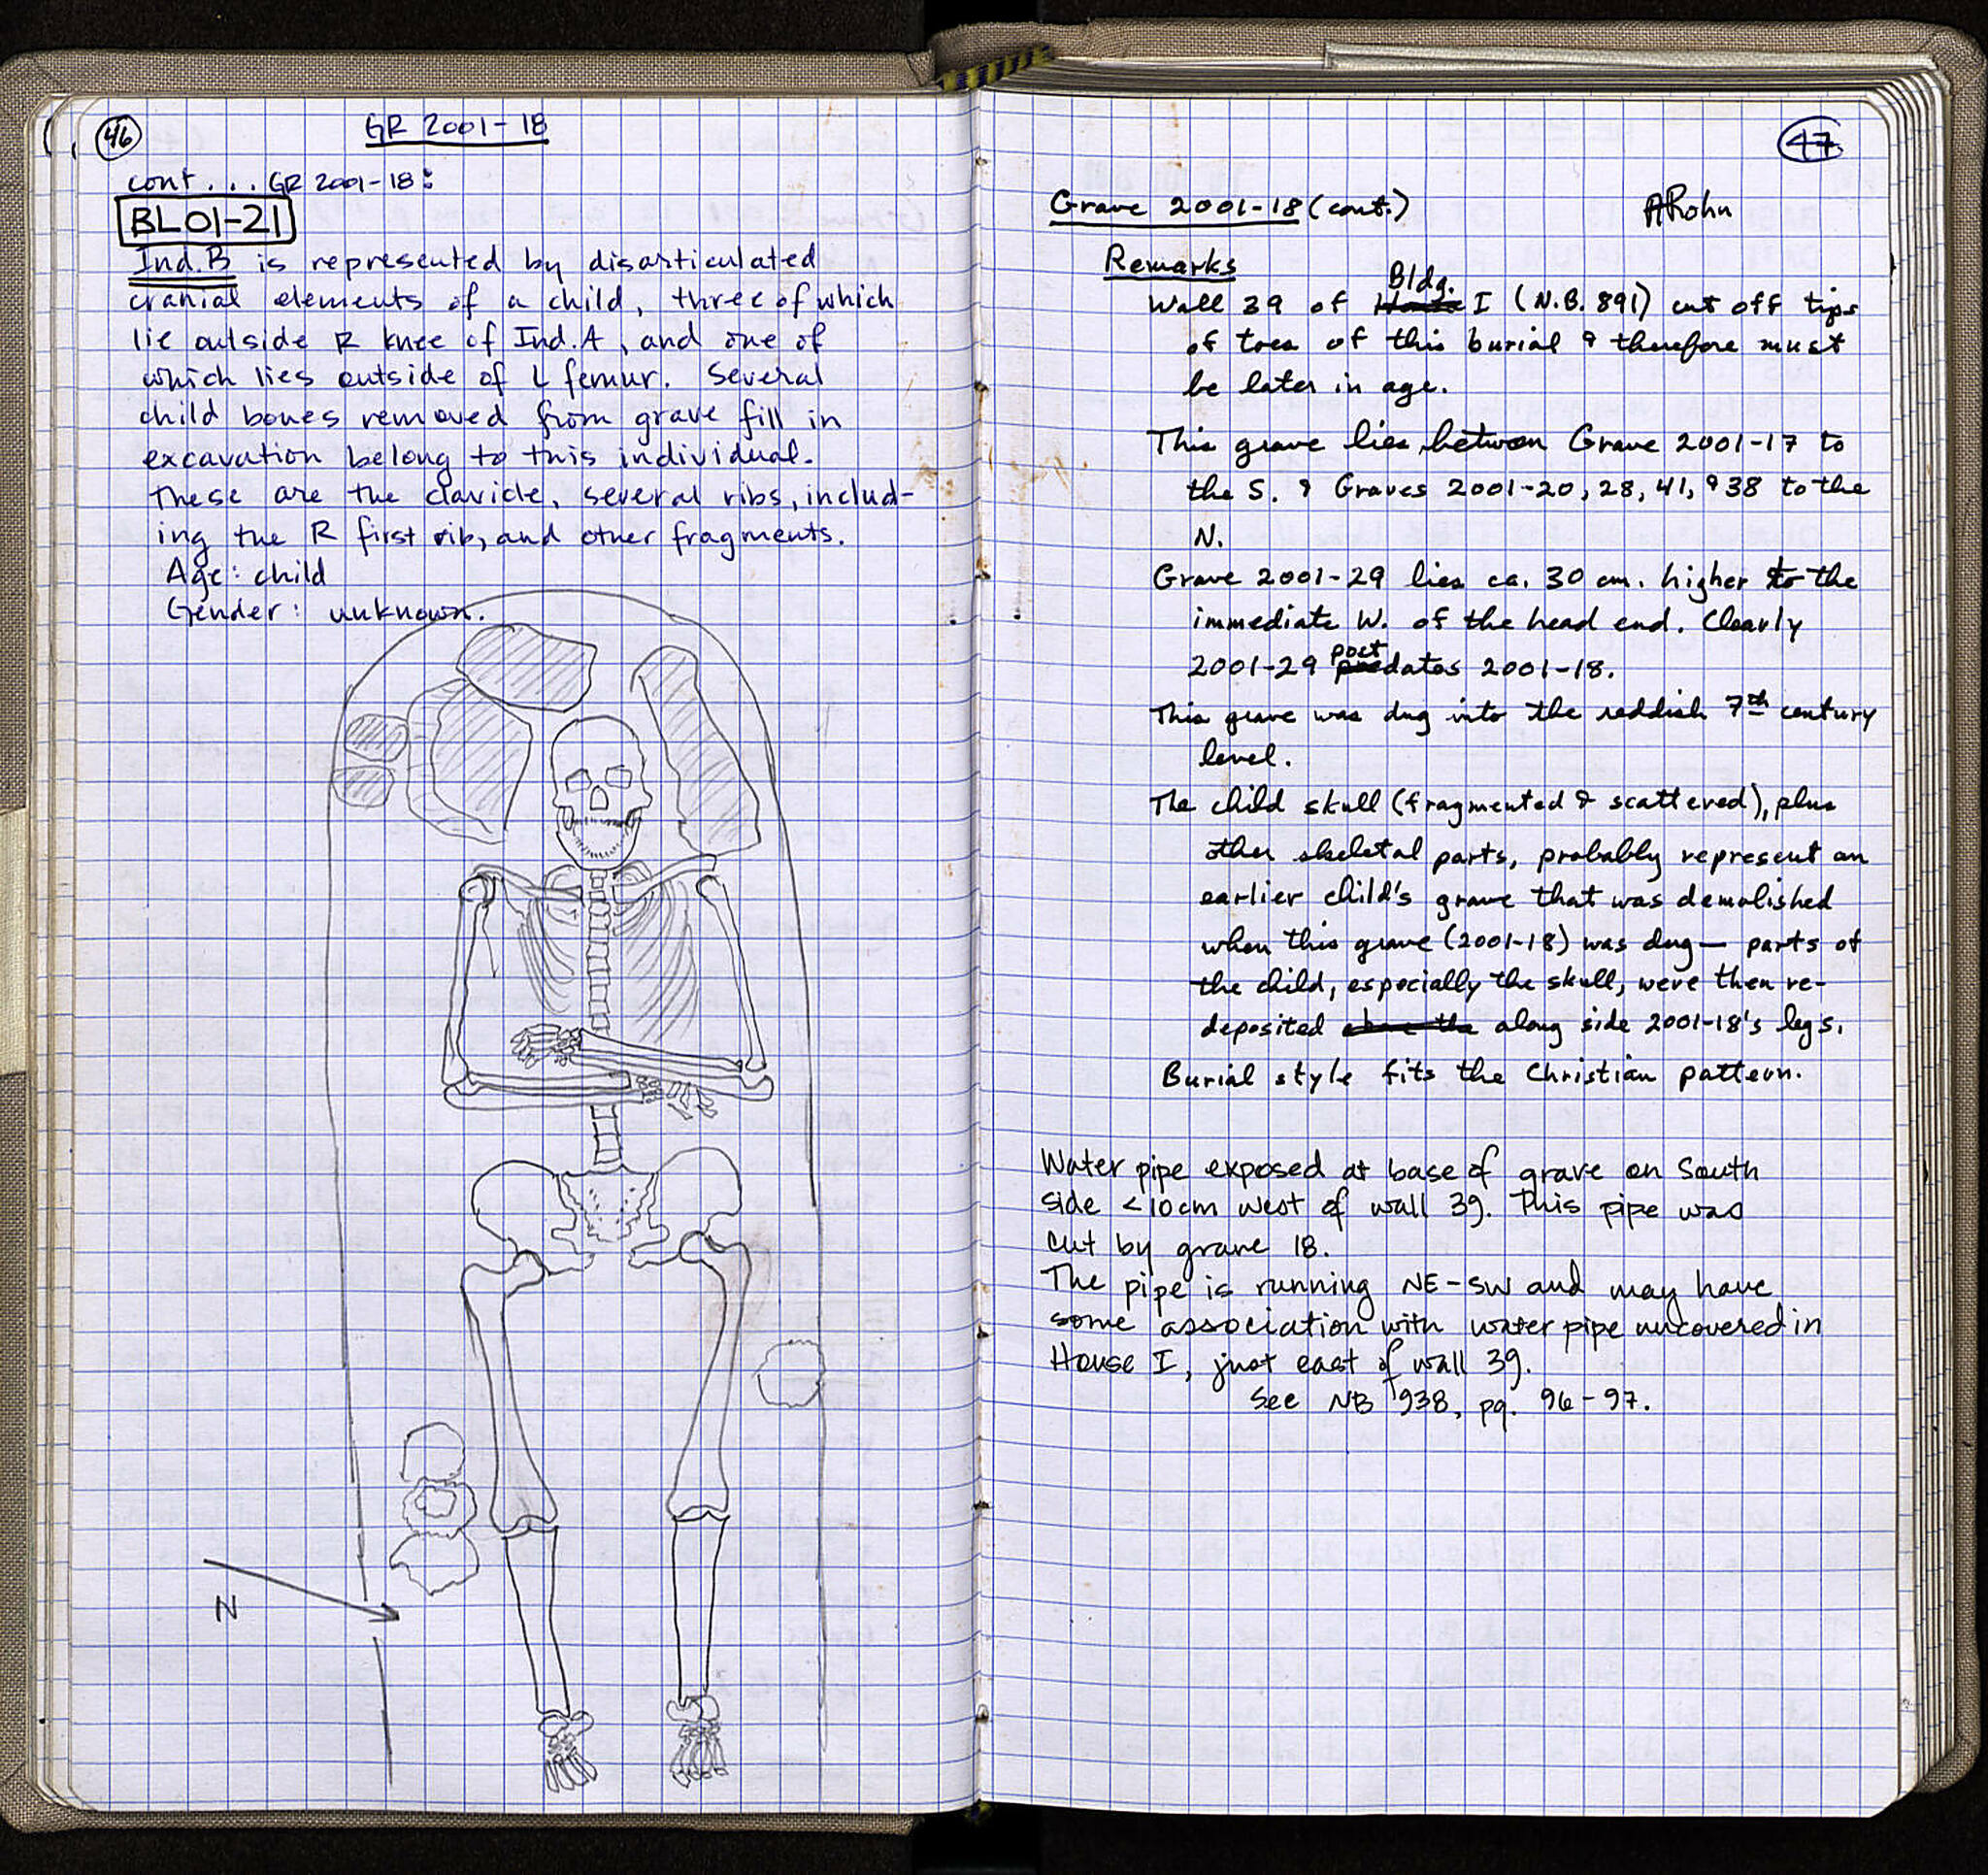 46
GR 2001-18
cont... GR 2001-18:
BL01-21
Ind. B is represented by disarticulated
cranial elements of a child, three of which
lie outside R knee of Ind. A, and one of
which lies outside of L femur. Several
child bones removed from grave fill in
excavation belong to this individual.
These are the clavicle, several ribs, includ-
ing the R first rib, and other fragments.
Age: child
Gender: unknown.
N
47
Grave 2001-18 (cont.) ARohn
Remarks
Bldg.
Wall 39 of House I (N.B. 891) cut off tips
of toes of this burial & therefore must
be later in age.
This grave lies between Grave 2001-17 to
the S. & Graves 2001-20, 28, 41, & 38 to the
N.
Grave 2001-29 lies ca. 30 cm. higher to the
immediate W. of the head end. Clearly
post
2001-29 predates 2001-18.
This grave was dug into the reddish 7th century
level.
The child skull (fragmented & scattered), plus
other skeletal parts, probably represent an
earlier child's grave that was demolished
when this grave (2001-18) was dug — parts of
the child, especially the skull, were then re-
deposited above the along side 2001-18's legs.
Burial style fits the Christian pattern.
Water pipe exposed at base of grave on South
side <10cm west of wall 39. This pipe was
cut by grave 18.
The pipe is running NE-SW and may have
some association with water pipe uncovered in
House I, just east of wall 39.
See NB 938, pg. 96-97.